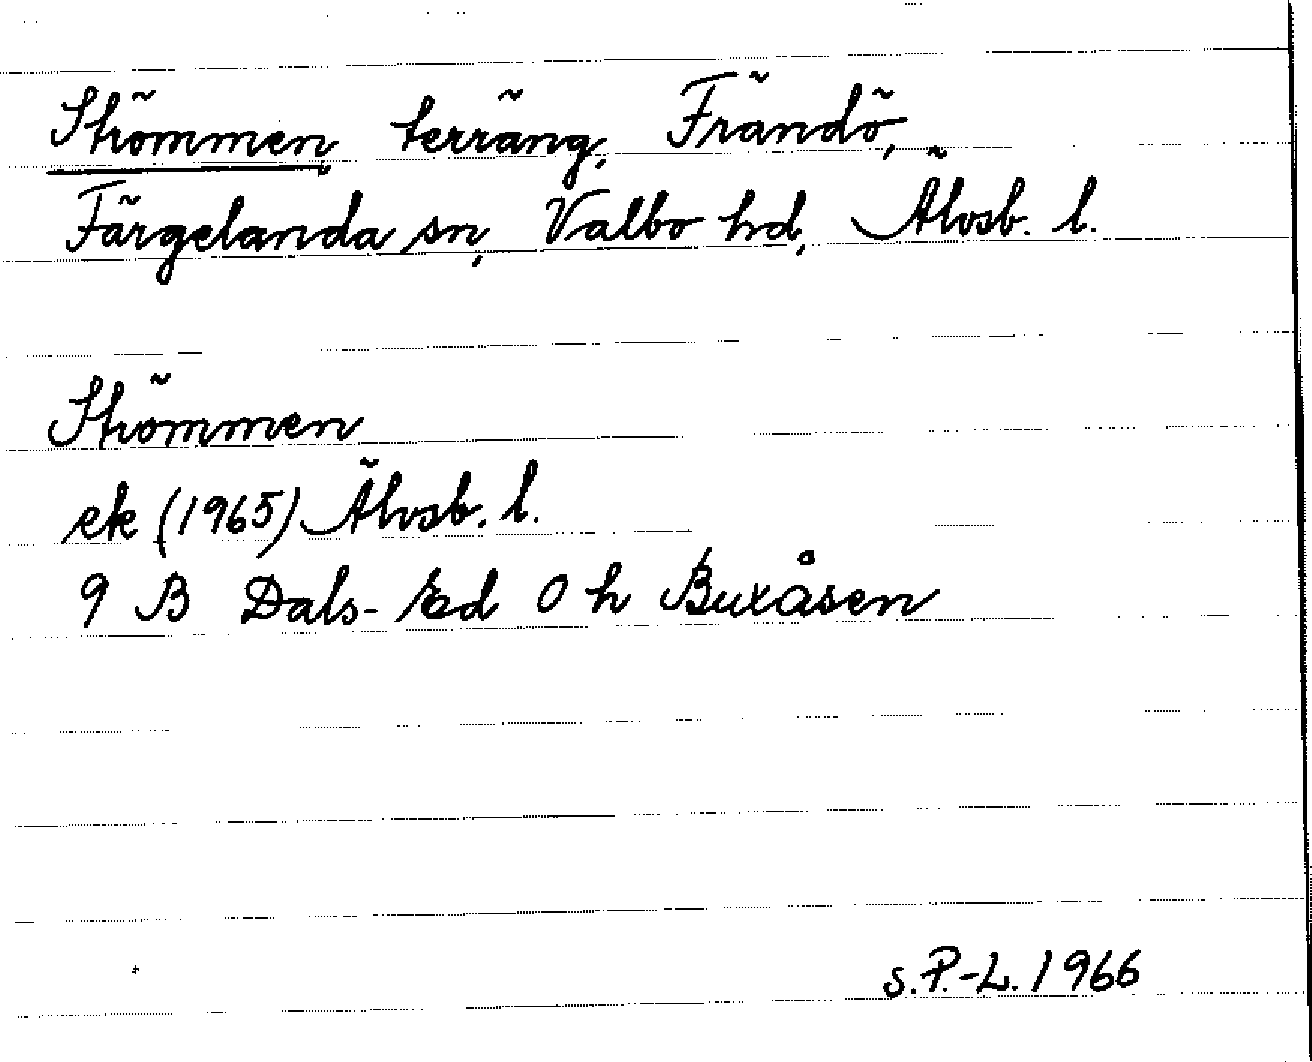 Strömmen, terräng, Frändö,
Färgelanda sn, Valbo hd, Älvsb. l.
Strömmen
ek (1965) Älvsb. l.
9 B Dals-Ed 0 h Buxåsen
s.P.-L. 1966